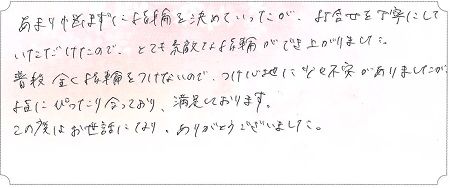 あまり悩まずに指輪を決めていったが、お打合せを丁寧にして
いただけたので、とても素敵な指輪ができ上がりました。
普段全く指輪をつけないので、つけ心地に少々不安がありましたが
指にぴったり合っており、満足しております。
この度はお世話になり、ありがとうございました。